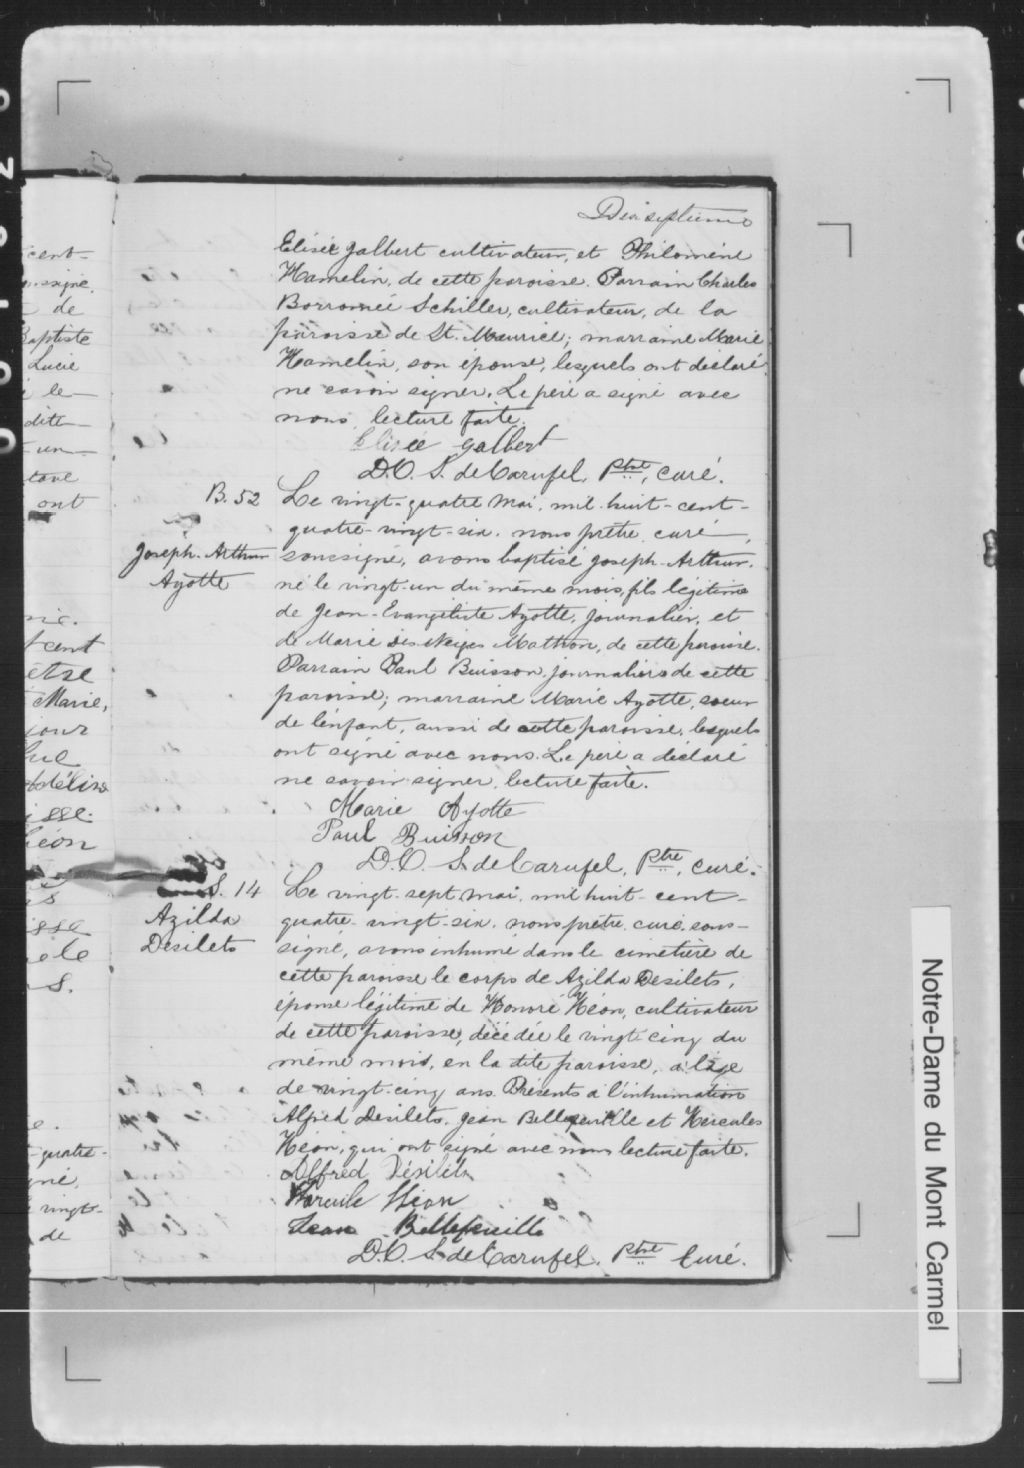 Dixseptième
Elisée Galbert cultivateur, et Philomène
Hamelin, de cette paroisse. Parrain Charles
Borromée Schiller, cultivateur, de la
paroisse de St. Maurice; marraine Marie
Hamelin, son épouse, lesquels ont déclaré
ne savoir signer. Le père a signé avec
nous, lecture faite.
Elisée Galbert
D.C. S. de Carufel, Ptre, curé.
B. 52
Joseph-Arthur
Ayotte
Le vingt-quatre Mai, mil-huit-cent-
quatre-vingt-six, nous prêtre curé,
soussigné, avons baptisé Joseph-Arthur,
né le vingt-un du même mois, fils légitime
de Jean-Evangéliste Ayotte, journalier, et
de Marie des Neiges Mathon, de cette paroisse.
Parrain Paul Buisson, journalier de cette
paroisse; marraine Marie Ayotte, soeur
de l'enfant, aussi de cette paroisse, lesquels
ont signé avec nous. Le père a déclaré
ne savoir signer, lecture faite.
Marie Ayotte
Paul Buisson
D.C. S. de Carufel, Ptre, curé.
S. 14
Azilda
Désilets
Le vingt-sept mai, mil huit-cent-
quatre-vingt-six, nous prêtre, curé, sous-
signé, avons inhumé dans le cimetière de
cette paroisse le corps de Azilda Desilets,
épouse légitime de Honoré Héon, cultivateur
de cette paroisse, décédée le vingt-cinq du
même mois, en la dite paroisse, à l'âge
de vingt-cinq ans. Présents à l'inhumation
Alfred Desilets, Jean Bellefeuille et Hercules
Héon, qui ont signé avec nous lecture faite.
Alfred Désilets
Hercule Héon
Jean Bellefeuille
D.C. S. de Carufel, Ptre Curé.
cent-
de
Baptiste
Lucie
le
dite
un
ont
cent
Marie,
jour
isse
Héon
le
S.
quatre-
vingt-
de
Notre-Dame du Mont Carmel